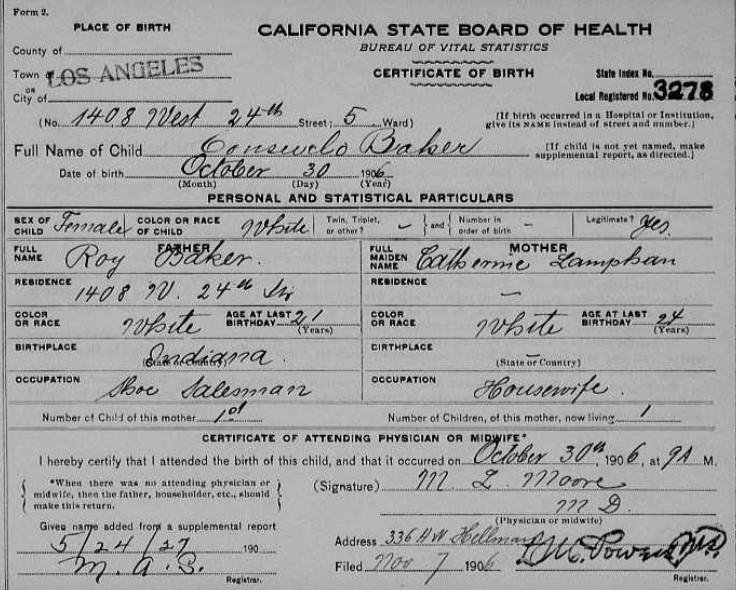 Form 2.
PLACE OF BIRTH
CALIFORNIA STATE BOARD OF HEALTH
BUREAU OF VITAL STATISTICS
CERTIFICATE OF BIRTH
County of
Town of LOS ANGELES
or
City of
State Index No.
Local Registered No. 3278
(No. 1408 West 24th Street; 5 Ward)
[If birth occurred in a Hospital or Institution, give its NAME instead of street and number.]
Full Name of Child Consuelo Baker
[If child is not yet named, make supplemental report, as directed.]
Date of birth October 30 1906
(Month) (Day) (Year)
PERSONAL AND STATISTICAL PARTICULARS
SEX OF CHILD Female COLOR OR RACE OF CHILD White Twin, Triplet, or other? – and Number in order of birth – Legitimate? Yes.
FATHER
FULL NAME Roy Baker.
RESIDENCE 1408 W. 24th St
COLOR OR RACE White AGE AT LAST BIRTHDAY 21 (Years)
BIRTHPLACE Indiana.
(State or Country)
OCCUPATION Shoe Salesman
Number of Child of this mother 1st
MOTHER
FULL MAIDEN NAME Catherine Lamphan
RESIDENCE –
COLOR OR RACE White AGE AT LAST BIRTHDAY 24 (Years)
BIRTHPLACE –
(State or Country)
OCCUPATION Housewife.
Number of Children, of this mother, now living 1
CERTIFICATE OF ATTENDING PHYSICIAN OR MIDWIFE*
I hereby certify that I attended the birth of this child, and that it occurred on October 30th, 1906, at 9A M.
*When there was no attending physician or midwife, then the father, householder, etc., should make this return.
(Signature) M. L. Moore
M D.
(Physician or midwife)
Given name added from a supplemental report
5/24/27 190
M. A. S.
Registrar.
Address 336 H W Hellman
Filed Nov 7 1906 L M Powers MD.
Registrar.